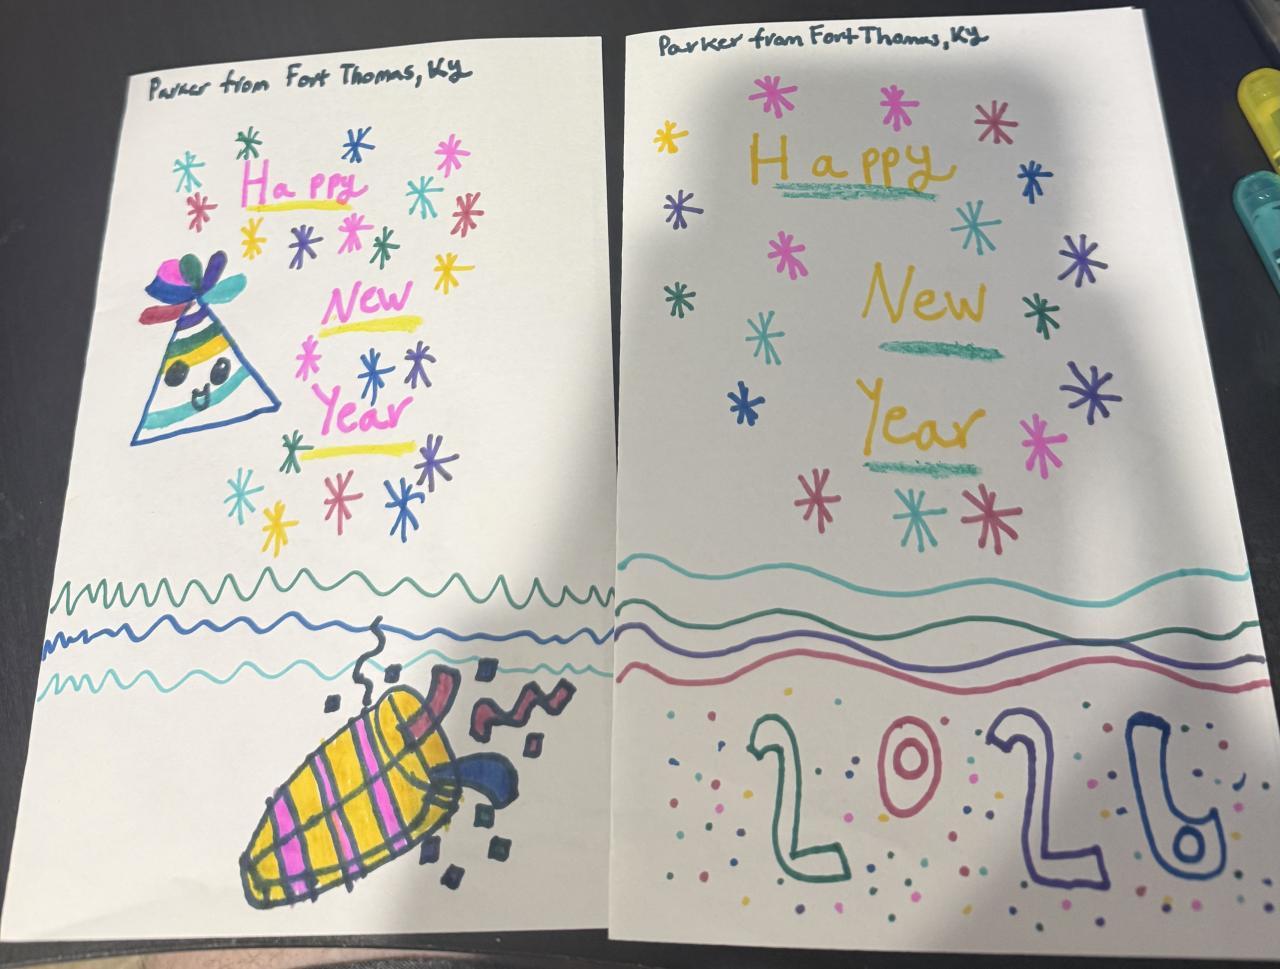 Parker from Fort Thomas, Ky
Happy
New
Year
Parker from Fort Thomas, Ky
Happy
New
Year
2026